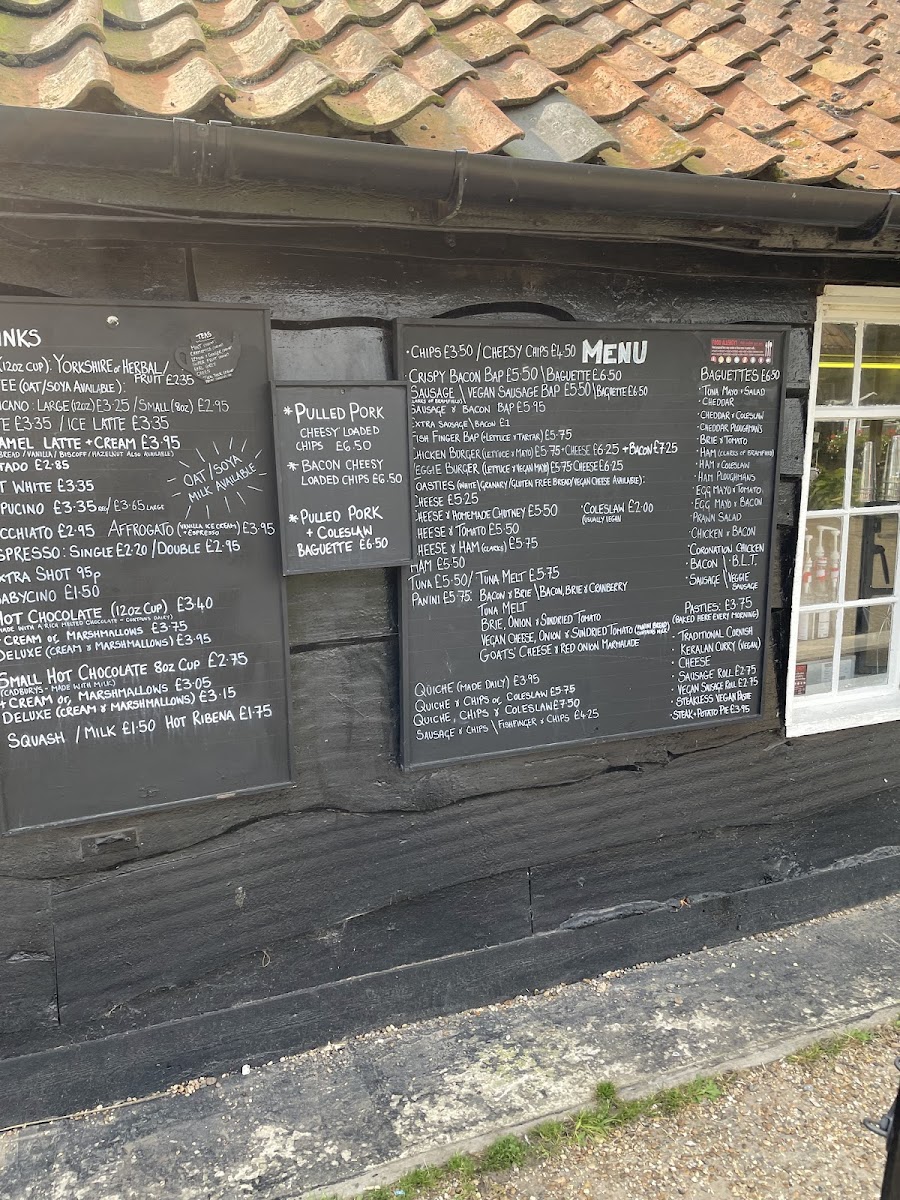 INKS
(12oz CUP): YORKSHIRE or HERBAL/
FRUIT £2.35
EE (OAT/SOYA AVAILABLE):
ICANO: LARGE (12oz) £3.25 / SMALL (8oz) £2.95
TE £3.35 / ICE LATTE £3.35
AMEL LATTE + CREAM £3.95
BREAD / VANILLA / BISCOFF / HAZELNUT ALSO AVAILABLE)
TADO £2.85
T WHITE £3.35
PUCINO £3.35 REG / £3.65 LARGE
CCHIATO £2.95 AFFROGATO (VANILLA ICE CREAM + ESPRESSO) £3.95
SPRESSO: SINGLE £2.20 / DOUBLE £2.95
XTRA SHOT 95p
ABYCINO £1.50
HOT CHOCOLATE (12oz CUP) £3.40
MADE WITH A RICH MELTED CHOCOLATE - CONTAINS DAIRY)
+ CREAM OR MARSHMALLOWS £3.75
DELUXE (CREAM & MARSHMALLOWS) £3.95
SMALL HOT CHOCOLATE 8oz CUP £2.75
(CADBURYS - MADE WITH MILK)
+ CREAM OR MARSHMALLOWS £3.05
DELUXE (CREAM & MARSHMALLOWS) £3.15
SQUASH / MILK £1.50 HOT RIBENA £1.75
TEAS
OAT/SOYA
MILK AVAILABLE
* PULLED PORK
CHEESY LOADED
CHIPS £6.50
* BACON CHEESY
LOADED CHIPS £6.50
* PULLED PORK
+ COLESLAW
BAGUETTE £6.50
MENU
• CHIPS £3.50 / CHEESY CHIPS £4.50
CRISPY BACON BAP £5.50 \ BAGUETTE £6.50
SAUSAGE \ VEGAN SAUSAGE BAP £5.50 \ BAGUETTE £6.50
(CLARKS OF BRAMFIELD)
SAUSAGE & BACON BAP £5.95
EXTRA SAUSAGE \ BACON £1
FISH FINGER BAP (LETTUCE & TARTAR) £5.75
CHICKEN BURGER (LETTUCE & MAYO) £5.75 + CHEESE £6.25 + BACON £7.25
VEGGIE BURGER (LETTUCE & VEGAN MAYO) £5.75 CHEESE £6.25
TOASTIES (WHITE / GRANARY / GLUTEN FREE BREAD / VEGAN CHEESE AVAILABLE):
CHEESE £5.25
CHEESE & HOMEMADE CHUTNEY £5.50
CHEESE & TOMATO £5.50
CHEESE & HAM (CLARKS) £5.75
HAM £5.50
TUNA £5.50 / TUNA MELT £5.75
• COLESLAW £2.00
(USUALLY VEGAN)
PANINI £5.75: BACON & BRIE \ BACON, BRIE & CRANBERRY
TUNA MELT
BRIE, ONION & SUNDRIED TOMATO
VEGAN CHEESE, ONION & SUNDRIED TOMATO
GOATS CHEESE & RED ONION MARMALADE
QUICHE (MADE DAILY) £3.95
QUICHE & CHIPS OR COLESLAW £5.75
QUICHE, CHIPS & COLESLAW £7.50
SAUSAGE & CHIPS \ FISHFINGER & CHIPS £4.25
FOOD ALLERGY?
BAGUETTES £6.50
• TUNA MAYO & SALAD
• CHEDDAR
• CHEDDAR & COLESLAW
• CHEDDAR PLOUGHMANS
• BRIE & TOMATO
• HAM (CLARKS OF BRAMFIELD)
• HAM & COLESLAW
• HAM PLOUGHMANS
• EGG MAYO & TOMATO
• EGG MAYO & BACON
• PRAWN SALAD
• CHICKEN & BACON
• CORONATION CHICKEN
• BACON \ • B.L.T.
• SAUSAGE \ VEGGIE
SAUSAGE
PASTIES: £3.75
(BAKED HERE EVERY MORNING)
• TRADITIONAL CORNISH
• KERALAN CURRY (VEGAN)
• CHEESE
• SAUSAGE ROLL £2.75
• VEGAN SAUSAGE ROLL £2.75
• STEAKLESS VEGAN PASTIE
• STEAK & POTATO PIE £3.95